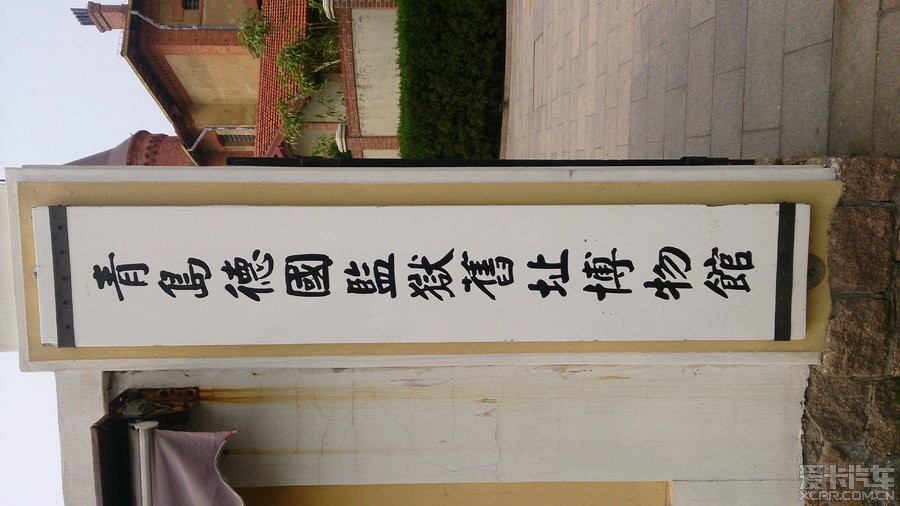 青島德國監獄舊址博物館
爱卡汽车
XCAR.COM.CN